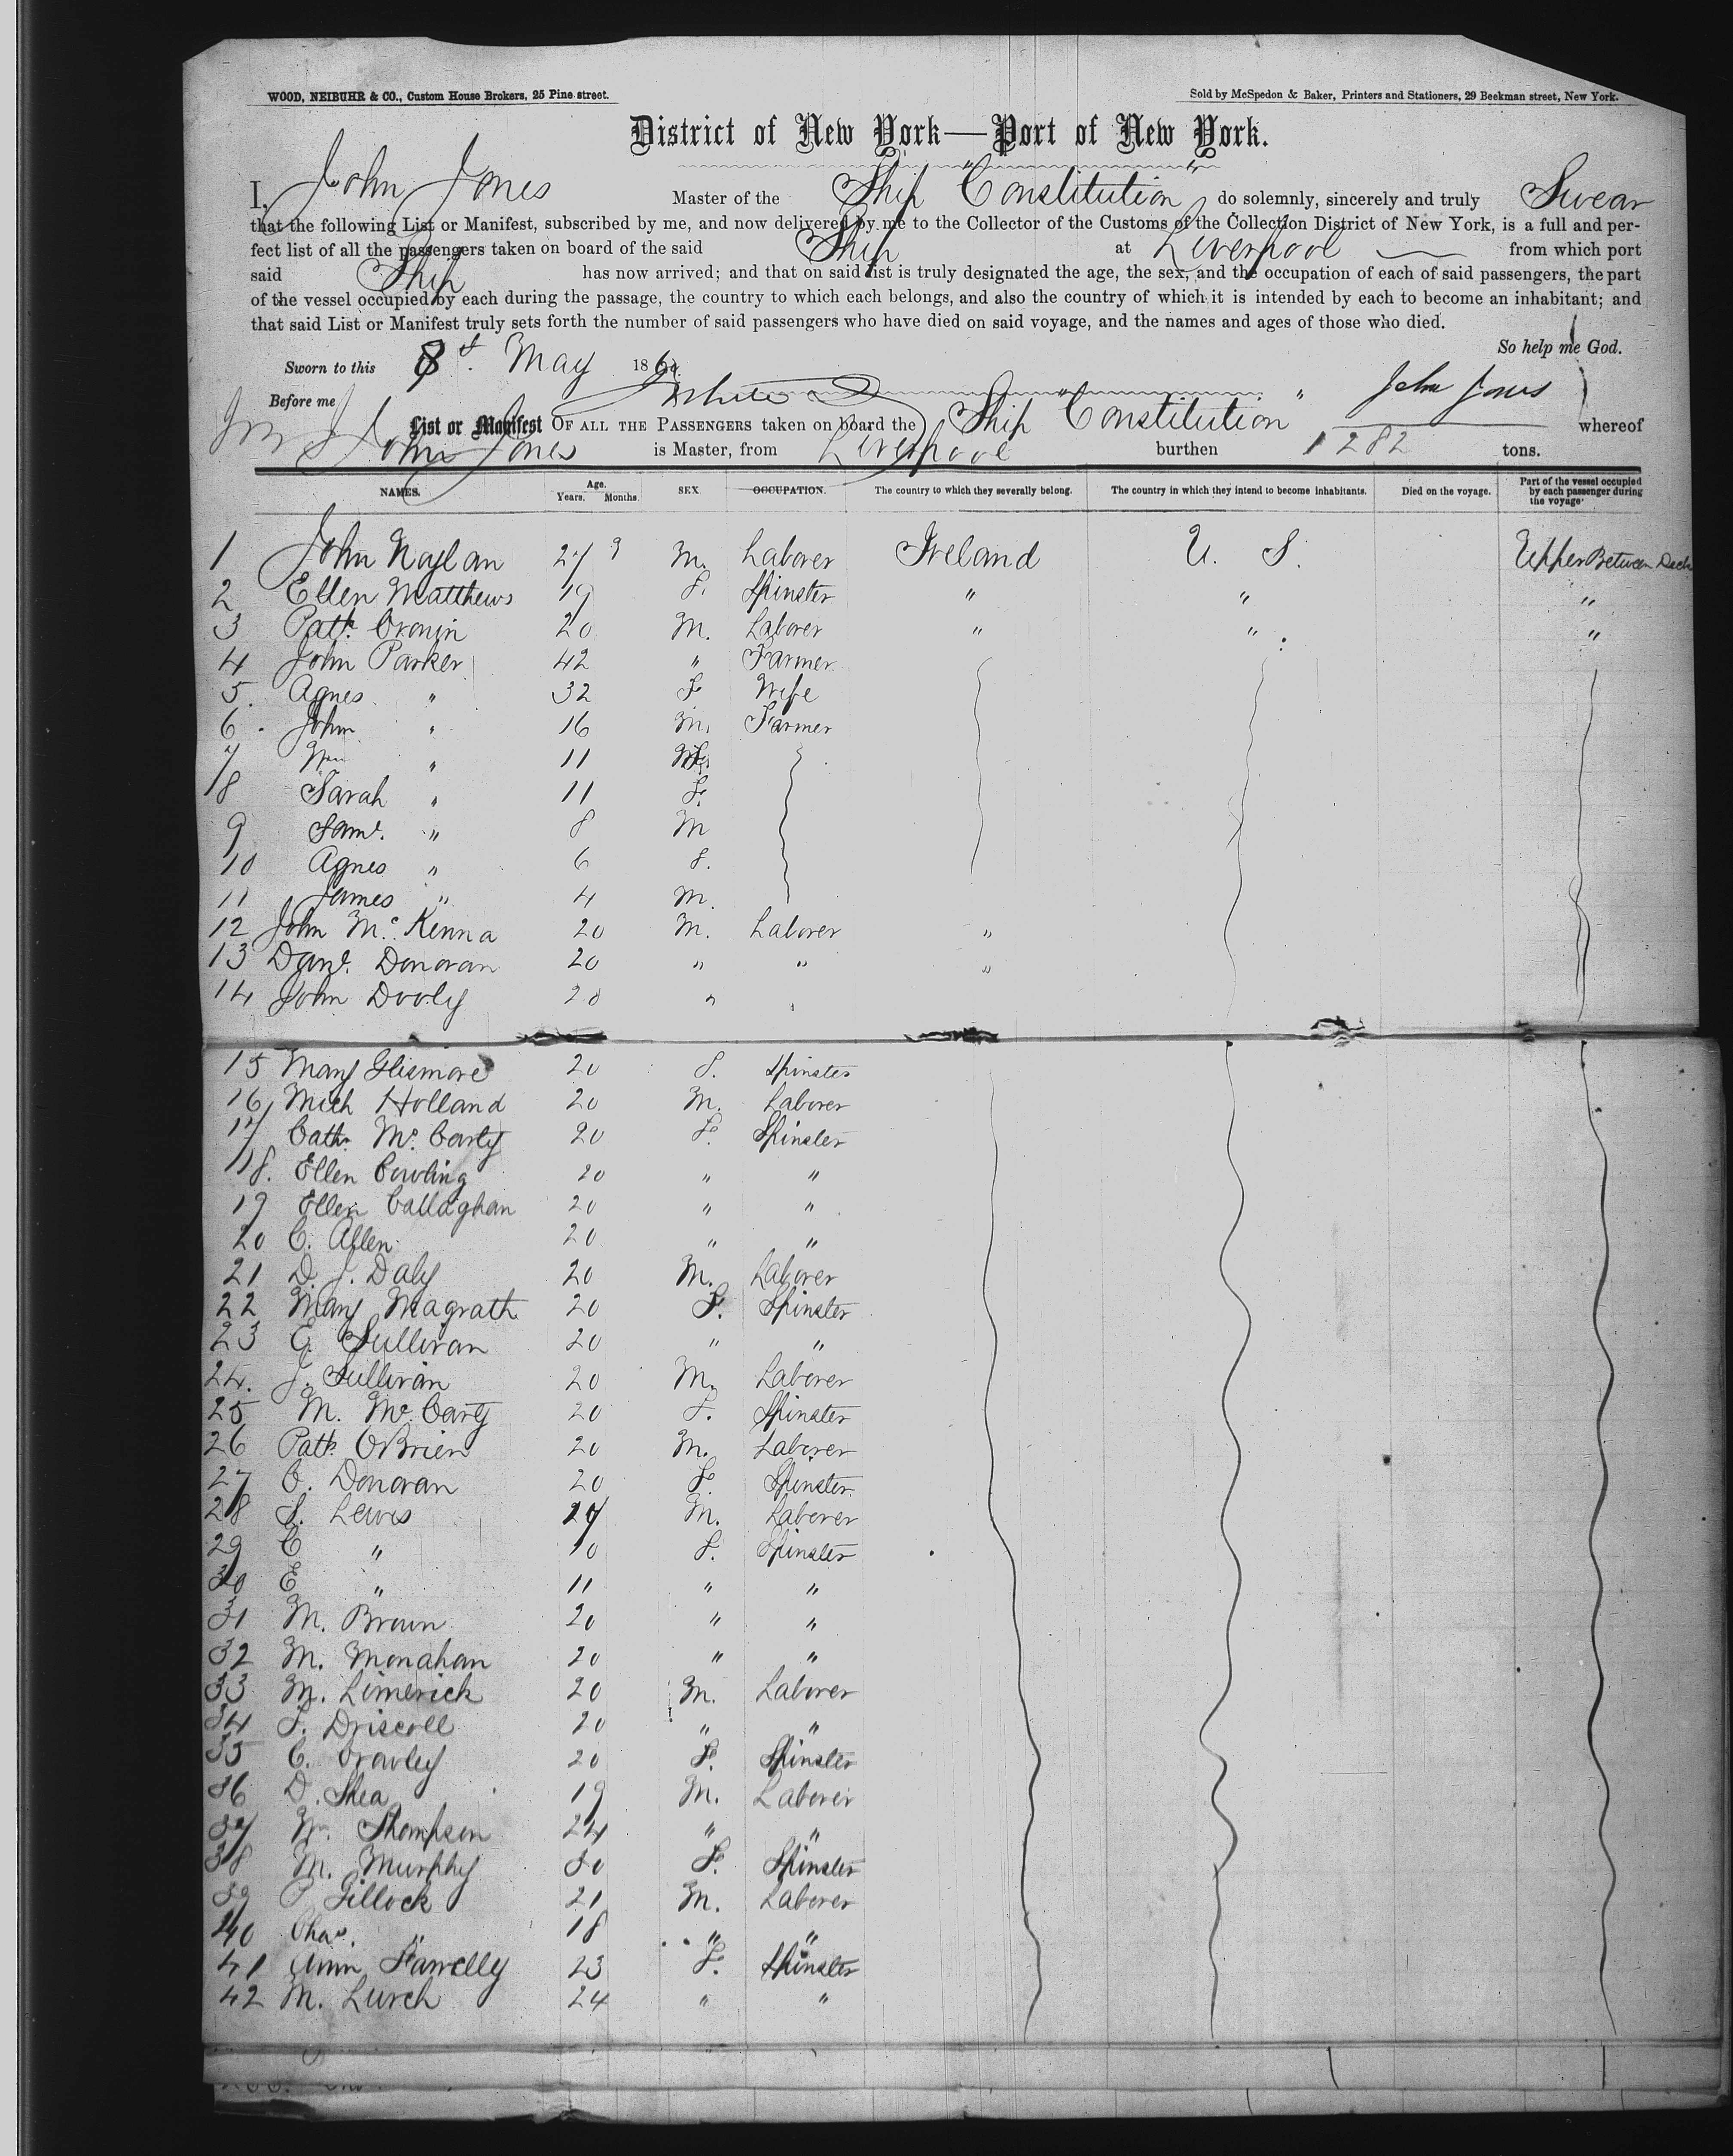 WOOD, NEIBUHR & CO., Custom House Brokers, 25 Pine street.
Sold by McSpedon & Baker, Printers and Stationers, 29 Beekman street, New York.
District of New York—Port of New York.
I, John Jones Master of the Ship "Constitution" do solemnly, sincerely and truly Swear
that the following List or Manifest, subscribed by me, and now delivered by me to the Collector of the Customs of the Collection District of New York, is a full and per-
fect list of all the passengers taken on board of the said Ship at Liverpool from which port
said Ship has now arrived; and that on said list is truly designated the age, the sex, and the occupation of each of said passengers, the part
of the vessel occupied by each during the passage, the country to which each belongs, and also the country of which it is intended by each to become an inhabitant; and
that said List or Manifest truly sets forth the number of said passengers who have died on said voyage, and the names and ages of those who died.
So help me God.
Sworn to this 8 May 1860
Before me John Jones
List or Manifest OF ALL THE PASSENGERS taken on board the Ship "Constitution" whereof
John Jones is Master, from Liverpool burthen 1282 tons.
NAMES. Age. Years. Months. SEX OCCUPATION. The country to which they severally belong. The country in which they intend to become inhabitants. Died on the voyage. Part of the vessel occupied by each passenger during the voyage.
1 John Naylan 27 9 M. Laborer Ireland U. S. Upper Between Deck
2 Ellen Matthews 19 F. Spinster " " "
3 Patk. Cronin 20 M. Laborer " " "
4 John Parker 42 " Farmer
5. Agnes " 32 F Wife
6. John " 16 M. Farmer
7 Wm " 11 M
8 Sarah " 11 F.
9 Saml. " 8 M
10 Agnes " 6 F.
11 James " 4 M.
12 John Mc. Kenna 20 M. Laborer "
13 Danl. Donovan 20 " " "
14 John Dooly 20 " "
15 Mary Glismore 20 F. Spinster
16 Mich Holland 20 M. Laborer
17 Cath. Mc. Carty 20 F. Spinster
18. Ellen Cowling 20 " "
19 Ellen Callaghan 20 " "
20 C. Allen 20 " "
21 D. J. Daly 20 M. Laborer
22 Mary Magrath 20 F. Spinster
23 C. Sullivan 20 " "
24. J. Sullivan 20 M. Laborer
25 M. Mc. Carty 20 F. Spinster
26 Patk OBrien 20 M. Laborer
27 C. Donovan 20 F. Spinster
28 S. Lewis 27 M. Laborer
29 C " 10 F. Spinster
30 E " 11 " "
31 M. Brown 20 " "
32 M. Monahan 20 " "
33 M. Limerick 20 M. Laborer
34 F. Driscoll 20 " "
35 C. Crowley 20 F. Spinster
36 D. Shea 19 M. Laborer
37 Wm. Thompson 24 " "
38 M. Murphy 30 F. Spinster
39 P Gillock 21 M. Laborer
40 Chas. " 18 " "
41 Ann Farrelly 23 F. Spinster
42 M. Lurch 24 " "